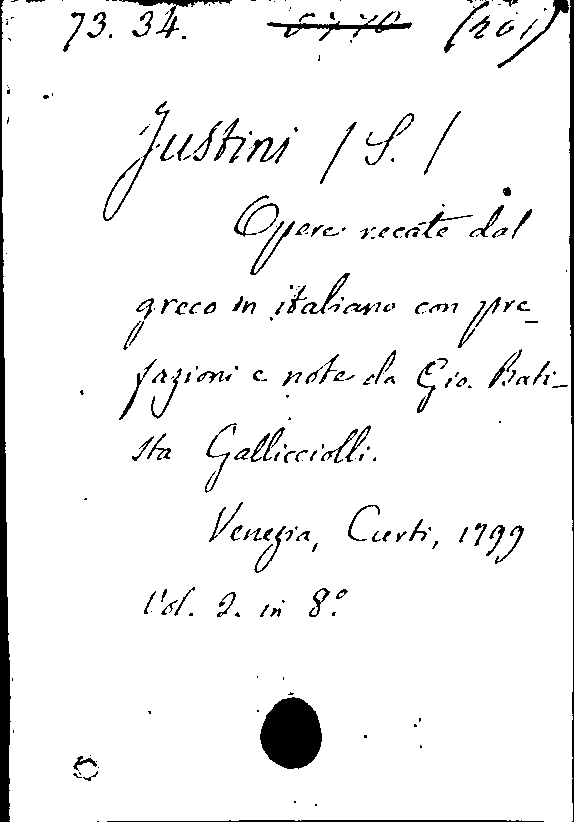 73. 34. (201)
Justini / S. /
Opere recate dal
greco in italiano con pre_
fazioni e note da Gio. Bati_
sta Gallicciolli.
Venezia, Curti, 1799
Vol. 2. in 8.º